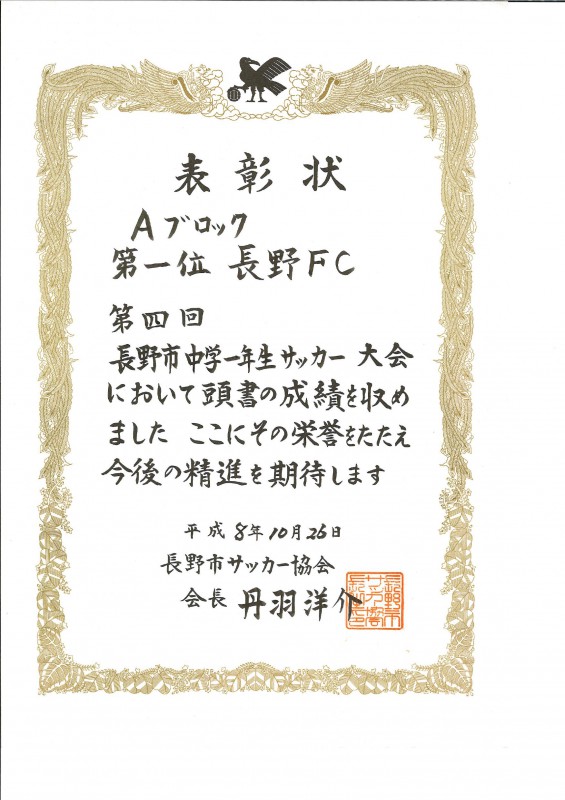 表彰状
Aブロック
第一位 長野FC
第四回
長野市中学一年生サッカー大会
において頭書の成績を収め
ました ここにその栄誉をたたえ
今後の精進を期待します
平成8年10月26日
長野市サッカー協会
会長 丹羽洋介